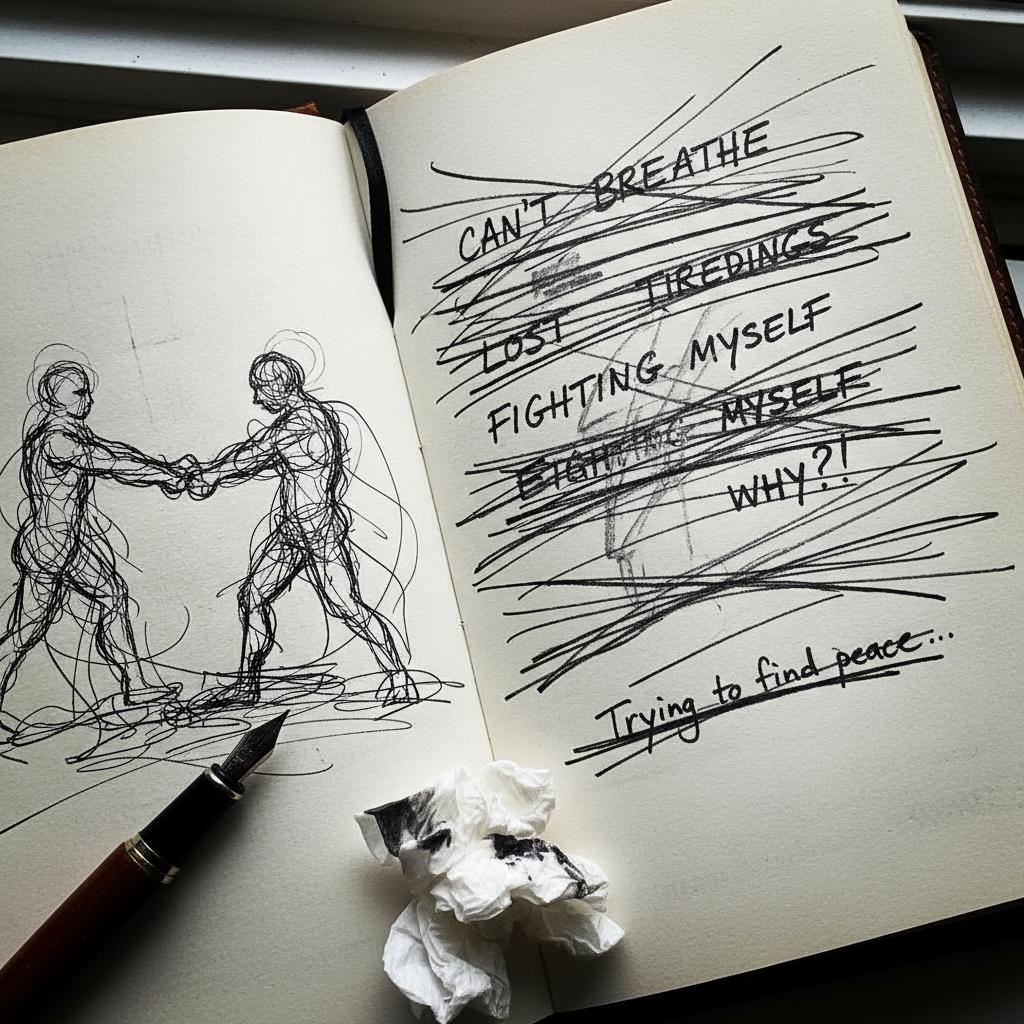 CAN'T BREATHE
LOST TIREDINGS
FIGHTING MYSELF
FIGHTING MYSELF
WHY?!
Trying to find peace...